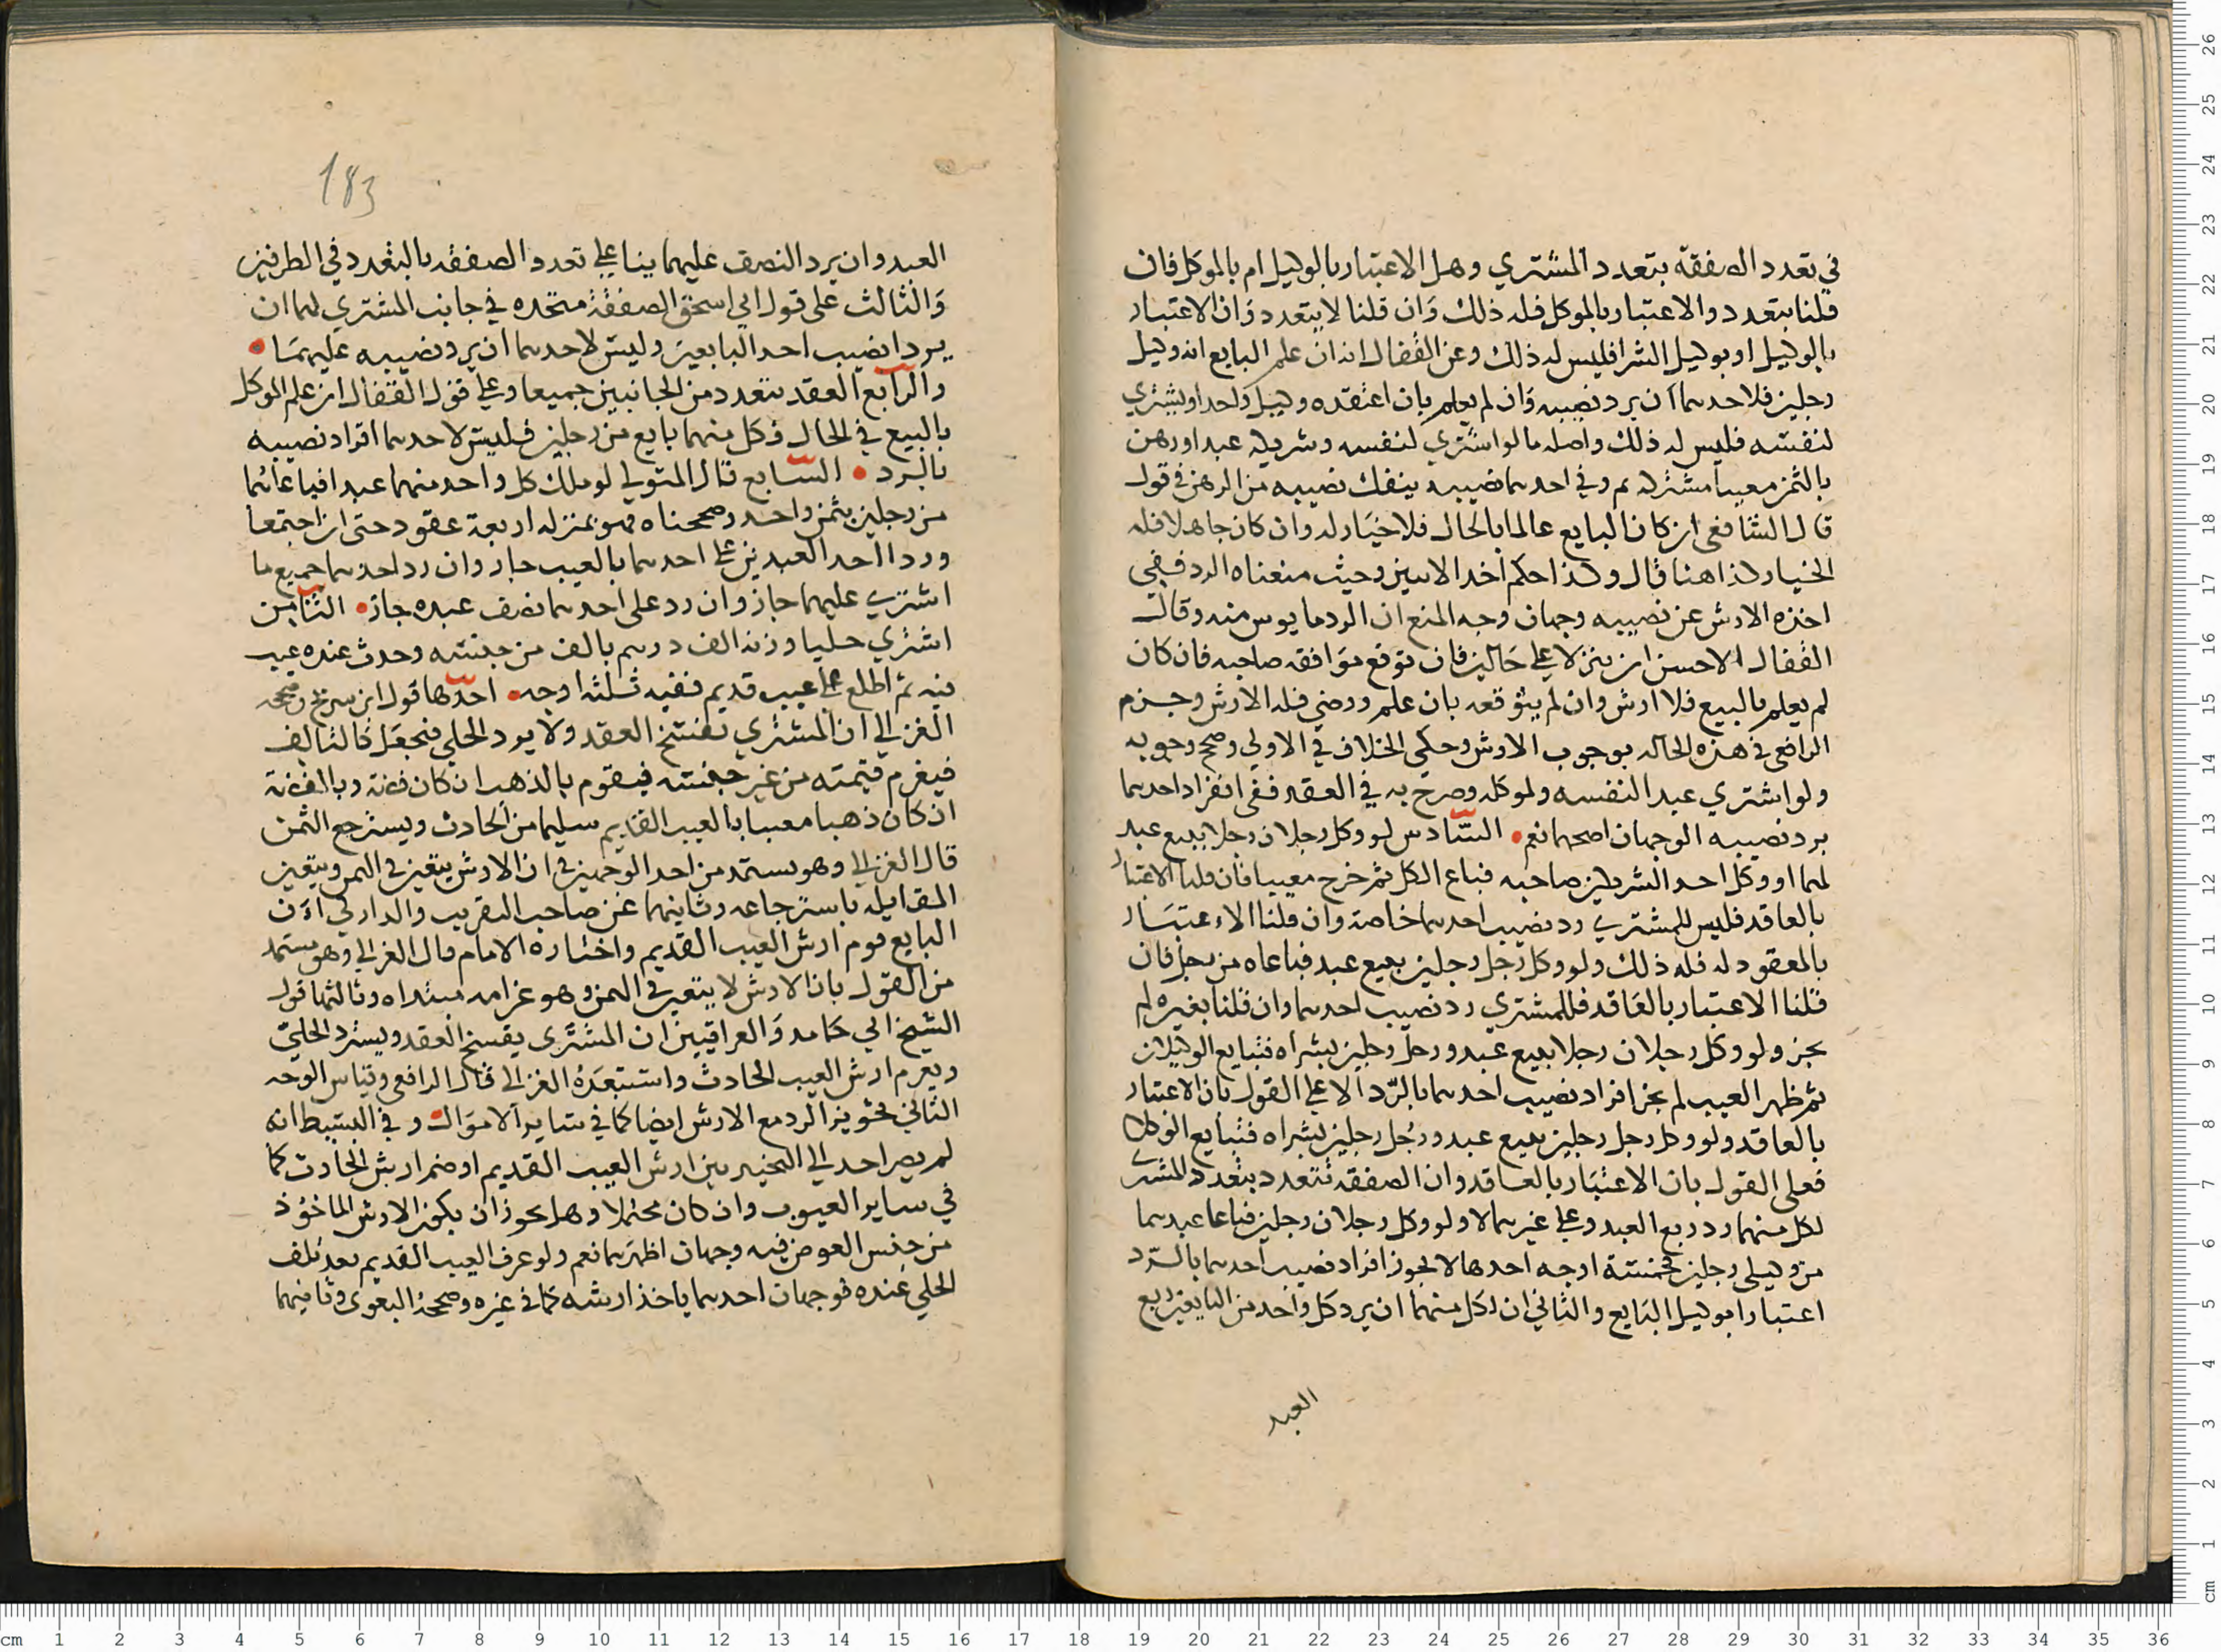 في تعدد الصفقة بتعدد المشتري وهل الاعتبار بالوكيل ام بالموكل فان
قلنا بتعدد والاعتبار بالموكل فله ذلك وان قلنا لا يتعدد وان الاعتبار
بالوكيل او بوكيل الشرا فليس له ذلك وعن القفال انه ان علم البايع انه وكيل
رجلين فلاحدهما ان يرد نصيبه وان لم يعلم بان اعتقده وكيل واحد او يشتري
لنفسه فليس له ذلك واصله ما لو اشتري لنفسه وشريكه عبدا ورهن
بالثمن معيبا مشتركهم وفي احدهما نصيبه ينفك نصيبه من الرهن في قول
قال الشافعي ان كان البايع عالما بالحال فلا خيار له وان كان جاهلا فله
الخيار كذا هنا قال وكذا حكم اخد الابنين وحيث منعناه الرد ففي
اخذه الارش عن نصيبه وجهان وجه المنع ان الرد مايوس منه وقال
القفال الاحسن ان ينزلا علي حالين فان توقع موافقه صاحبه فان كان
لم يعلم بالبيع فلا ارش وان لم يتوقعه بان علم ورضي فله الارش وجزم
الرافعي في هذه الحاله بوجوب الارش وحكي الخلاف في الاولي وصحح وجوبه
ولو اشتري عبدا لنفسه ولموكله وصرح به في العقد ففي انفراد احدهما
برد نصيبه الوجهان اصحهما نعم السادس لو وكل رجلان رجلا ببيع عبد
لهما او وكل احد الشريكين صاحبه فباع الكل ثم خرج معيبا فان قلنا الاعتبار
بالعاقد فليس للمشتري رد نصيب احدهما خاصة وان قلنا الاعتبار
بالمعقود له فله ذلك ولو وكل رجل رجلين ببيع عبد فباعاه من رجل فان
قلنا الاعتبار بالعاقد فللمشتري رد نصيب احدهما وان قلنا بغيره لم
يجز ولو وكل رجلان رجلا ببيع عبد ورجل رجلين بشراه فتبايع الوكيلان
ثم ظهر العيب لم يجز افراد نصيب احدهما بالرد الا علي القول بان الاعتبار
بالعاقد ولو وكل رجل رجلين ببيع عبد ورجل رجلين بشراه فتبايع الوكلا
فعلي القول بان الاعتبار بالعاقد وان الصفقه تتعدد بتعدد المشتري
لكل منهما رد ربع العبد وعلي غيرهما لا ولو وكل رجلان رجلين فباعا عبدهما
من وكيلي رجلين فخمسة اوجه احدها لا يجوز افراد نصيب احدهما بالرد
اعتبارا بوكيل البايع والثاني ان لكل منهما ان يرد كل واحد من البايعين ربع
العبد
183
العبد وان يرد النصف عليهما بنا علي تعدد الصفقه بالتعدد في الطرفين
والثالث علي قول ابي اسحق الصفقة متحده في جانب المشتري لهما ان
يردا نصيب احد البايعين وليس لاحدهما ان يرد نصيبه عليهما
والرابع العقد يتعدد من الجانبين جميعا وعلي قول القفال ان علم الموكل
بالبيع في الحال فكل منهما بايع من رجلين فليس لاحدهما افراد نصيبه
بالرد السابع قال المتولي لو ملك كل واحد منهما عبدا فباعاهما
من رجلين بثمن واحد وصححناه فهو بمنزله اربعة عقود حتي ان اجتمعا
وردا احد العبدين علي احدهما بالعيب جاز وان رد احدهما جميع ما
اشتري عليهما جاز وان رد علي احدهما نصف عبده جاز الثامن
اشتري حليا وزنه الف درهم بالف من جنسه وحدث عنده عيب
فيه ثم اطلع علي عيب قديم ففيه ثلثه اوجه احدها قول ابن سريج وصححه
الغزالي ان المشتري يفسخ العقد ولا يرد الحلي فنجعل كالتالف
فيغرم قيمته من غير جنسه فيقوم بالذهب ان كان فضة وبالفضة
ان كان ذهبا معيبا بالعيب القديم سليما من الحادث ويسترجع الثمن
قال الغزالي وهو يستمد من احد الوجهين في ان الارش يتعين في الثمن ويتعين
المقابله باسترجاعه وثانيهما عن صاحب التقريب والداركي ان
البايع يوم ارش العيب القديم واختاره الامام قال الغزالي وهو مستمد
من القول بان الارش لا يتعين في الثمن وهو غرامه مبتداه وثالثها قول
الشيخ ابي حامد والعراقيين ان المشتري يفسخ العقد ويسترد الحلي
ويغرم ارش العيب الحادث واستبعده الغزالي قال الرافعي وقياس الوجه
الثاني تجويز الرد مع الارش ايضا كما في ساير الاموال وفي البسيط انه
لم يصر احد الي التخيير بين ارش العيب القديم او ضم ارش الحادث كما
في ساير العيوب وان كان محتملا وهل يجوز ان يكون الارش الماخوذ
من جنس العوض فيه وجهان اظهرهما نعم ولو عرف العيب القديم بعد تلف
الحلي عنده فوجهان احدهما ياخذ ارشه كما في غيره وصححه البغوي وثانيهما